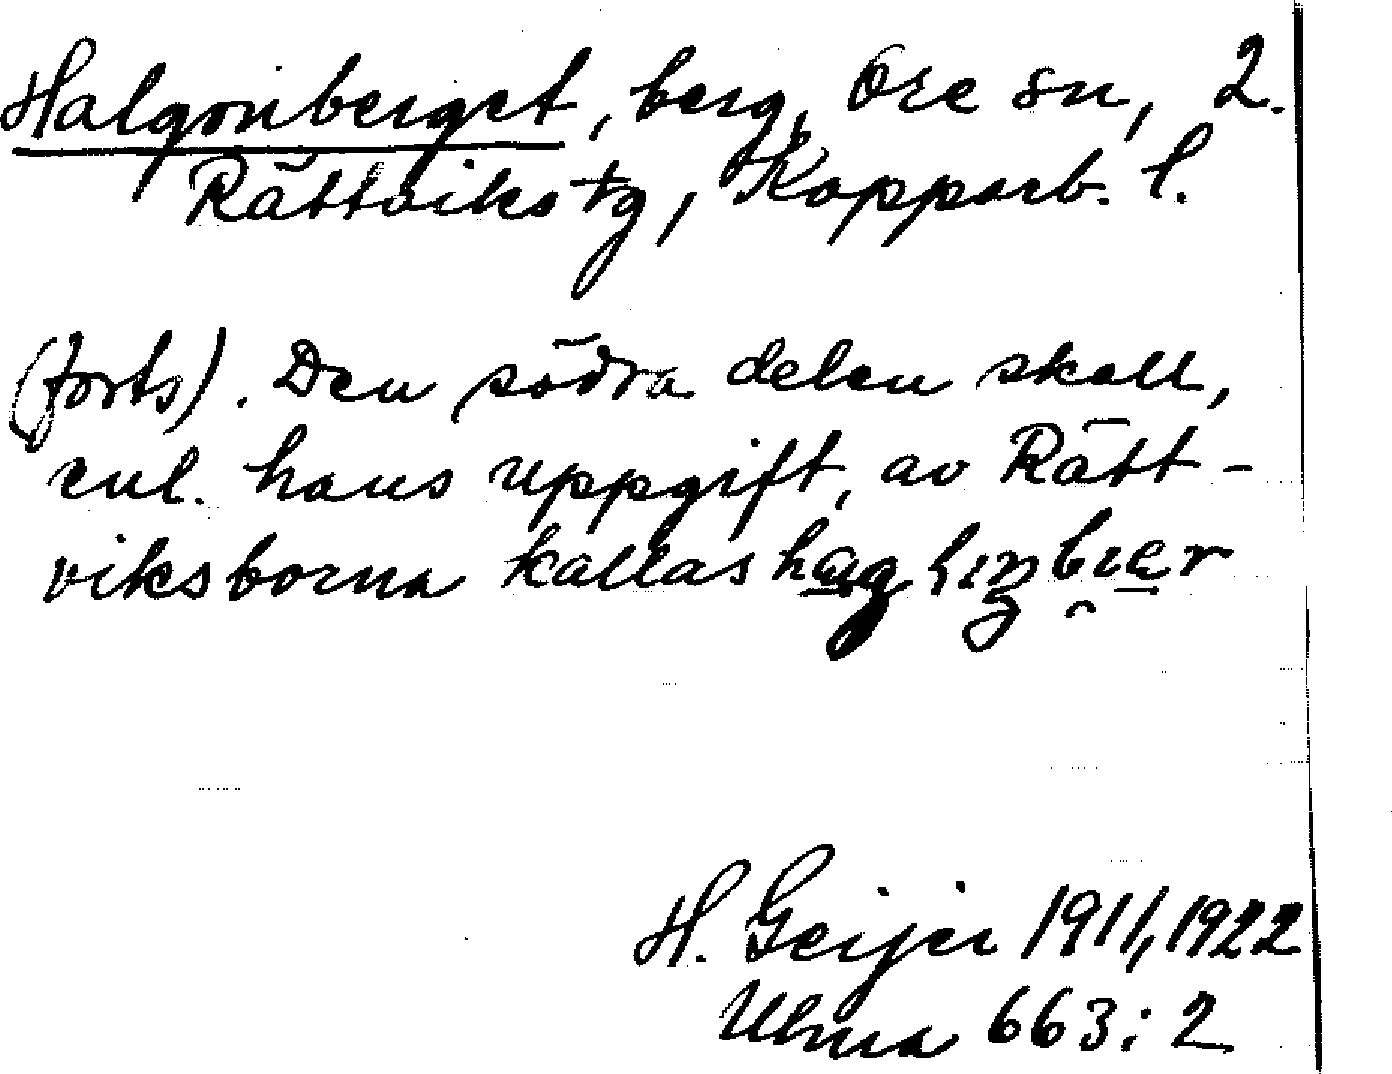 Halgonberget, berg, Ore sn, 2.
Rättviks tg, Kopparb. l.
(forts). Den södra delen skall,
enl. hans uppgift, av Rätt-
viksborna kallas
H. Geijer 1911, 1922
Ulma 663:2